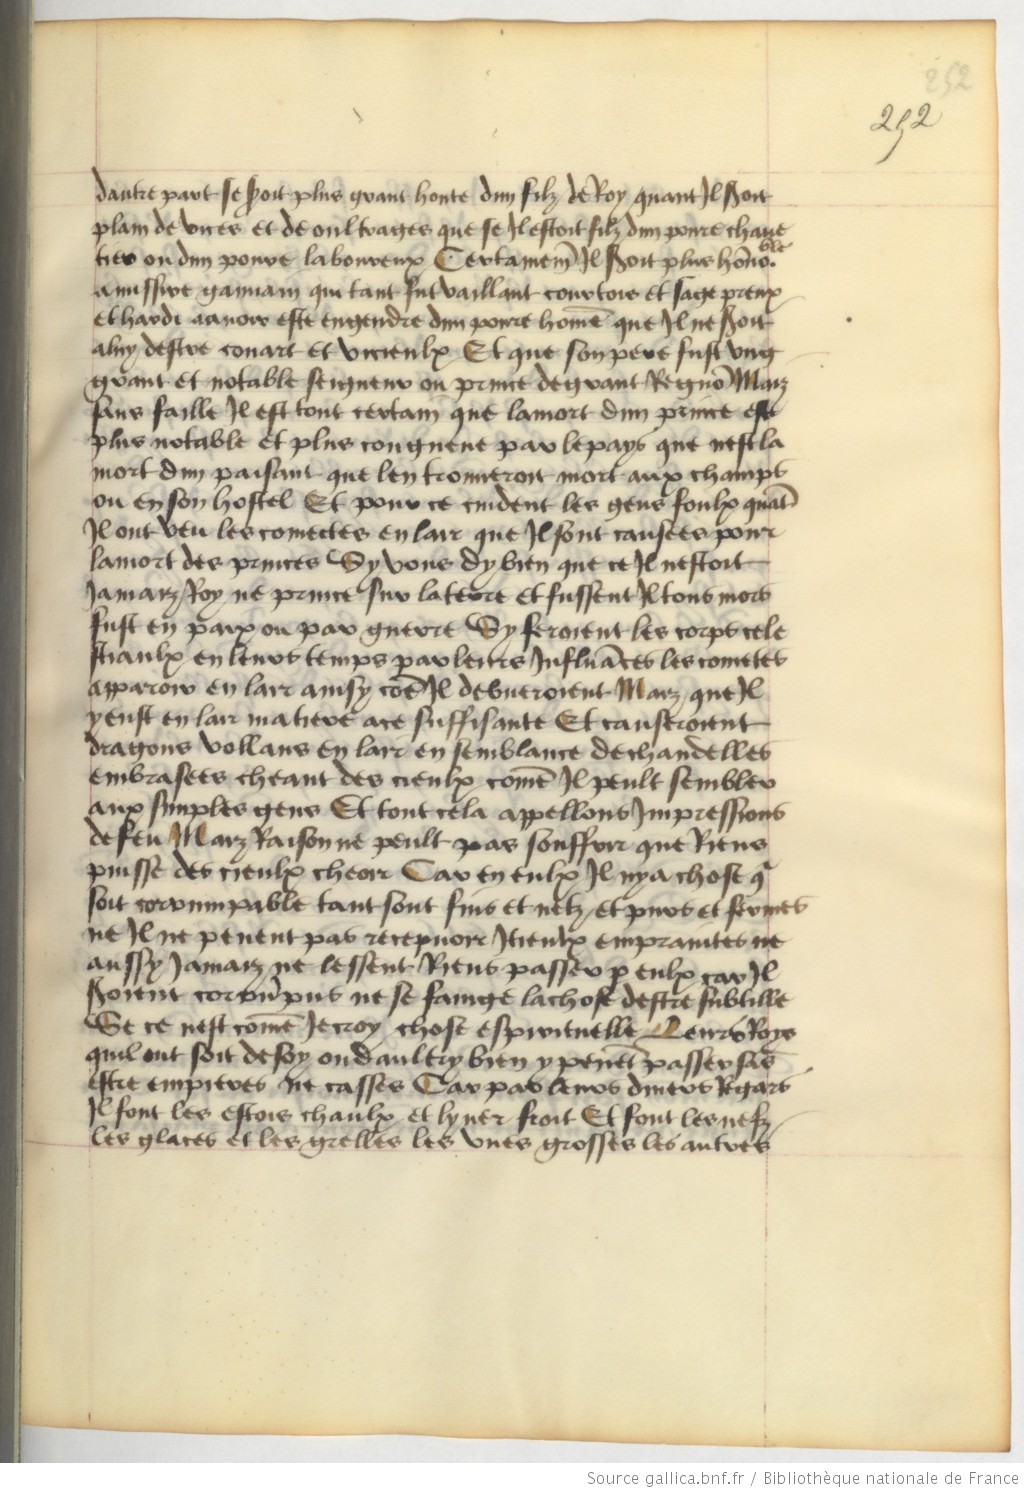 252
252
dautre part se Soit plus grant honte dun filz de Roy quant Il Soit
plain de vices et de oultrages que se Il estoit filz dun poure chaue
tier ou dun poure laboureux Certainem̄ Il Soit plus hōno.ble
a missire gauuain qui tant fut vaillant courtois et sage preux
et hardi auoir este engendre dun poure home que Il ne Soit
aluy destre couart et vicieulx Et que son pere fust vng
grant et notable seigneur ou prince de grant Regnō Maiz
sans faille Il est tout certain que lamort dun prince est
plus notable et plus congneue par le pays que nest la
mort dun paisant que len trouueroit mort aux champs
ou en son hostel Et pour ce cuident les gens foulx quāt
Il ont veu les comectes en lair que Il sont causees pour
lamort des princes Sy vous dy bien que ce Il nestoit
Jamaiz Roy ne prince sur laterre et fussent Il tous mors
fust en paix ou par guerre Sy feroient les corps cele
stiaulx en leurs temps par leurs Influāces les cometes
apparoir en lair ainsy cōe Il debueroient Maiz que Il
y eust en lair matiere ace suffisante Et causeroient
dragons vollans en lair en semblance de chandelles
embrasees cheant des cieulx comē Il peult sembler
aux simples gens Et tout cela appellons Impressions
de feu Maiz Raison ne peult pas souffrir que Riens
puisse des cieulx cheoir Car en eulx Il nya chose q̄
soit corrumpable tant sont fins et netz et purs et fermes
ne Il ne peuent pas recepuoir Itieulx emprainctes ne
aussy Jamaiz ne lessent Riens passer p eulx car Il
Soient corrūpus ne se fainge la chose destre subtille
Se ce nest comē Je croy chose espirituelle Leurs Roys
quil ont soit de soy ou daultry bien y peuēt passer sās
estre empieres ne casses Car par leurs diuers Regars
Il font les estois chaulx et lyuer froit Et font les nefz
les glaces et les grelles les vnes grosses les autres
Source gallica.bnf.fr / Bibliothèque nationale de France